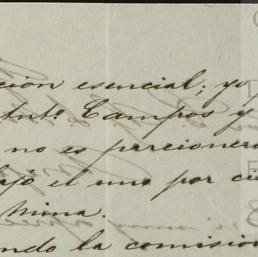 ción esencial; yo
Campos y
no es parcionero
ajó el uno por ci
mina.
ndo la comision